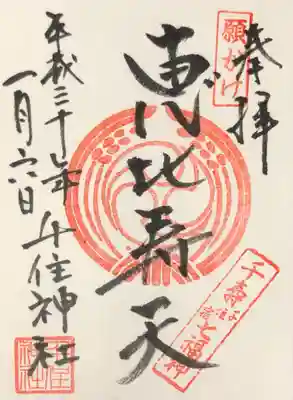 奉拝
願がけ
恵比寿天
千寿七福神
千住宿
平成三十年
一月六日 千住神社